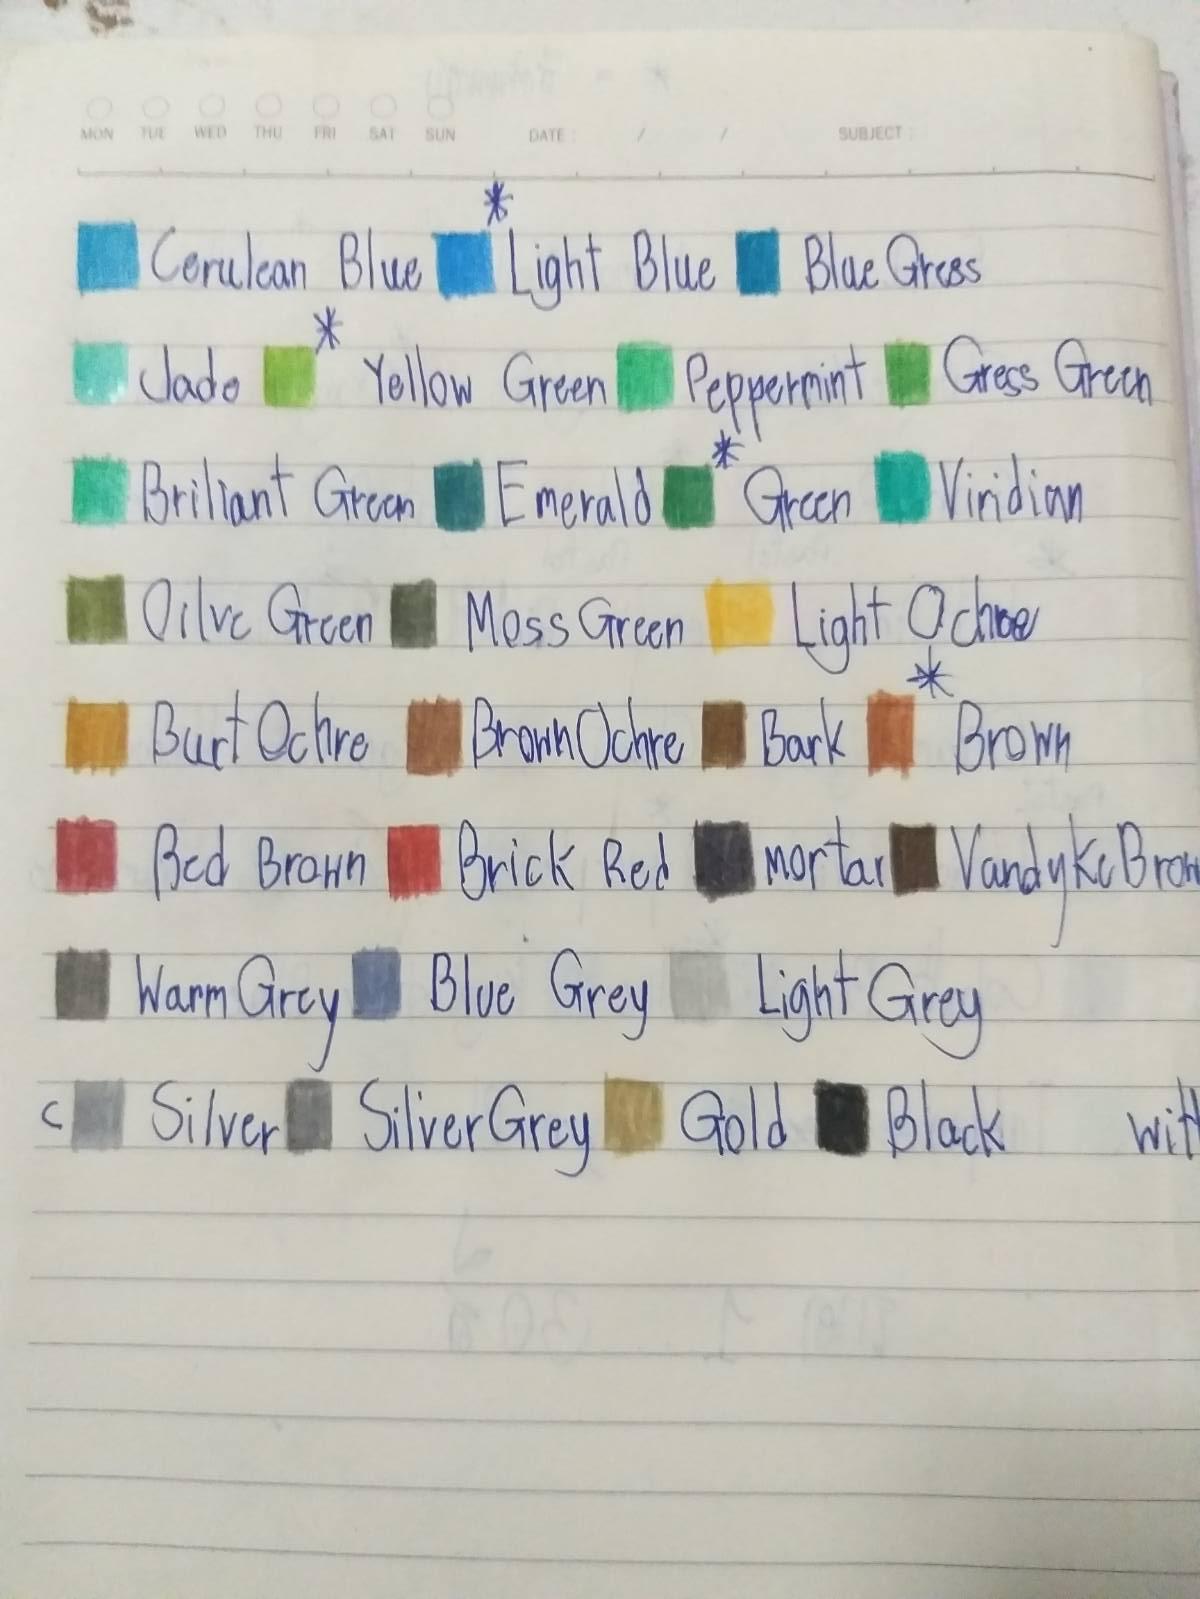 MON TUE WED THU FRI SAT SUN DATE : / / SUBJECT :
Cerulean Blue * Light Blue Blue Gress
Jado * Yellow Green Peppermint Gress Green
Briliant Green Emerald * Green Viridian
Oilve Green Moss Green Light Ochre
Burt Ochre Brown Ochre Bark * Brown
Red Brown Brick Red mortar Vandyke Brow
Warm Grey Blue Grey Light Grey
c Silver Silver Grey Gold Black wit